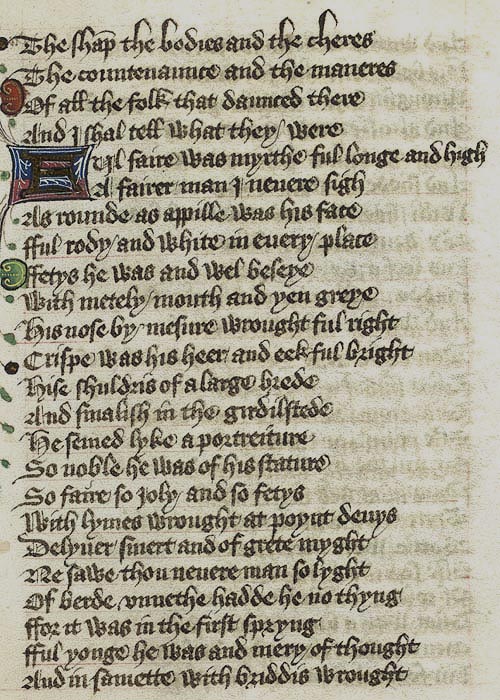 The shap the bodies and the cheres
The countenaunce and the maneres
Of all the folk that daunced there
And I shal tell what they were
Ful faire was myrthe ful longe and high
A fairer man I nevere sigh
As rounde as appille was his face
fful rody and white in every place
ffetys he was and wel beseye
With metely mouth and yen greye
His nose by mesure wrought ful right
Crispe was his heer and eek ful bright
Hise shuldris of a large brede
And smalish in the girdilstede
He semed lyke a portreiture
So noble he was of his stature
So faire so joly and so fetys
With lymes wrought at poynt devys
Delyver smert and of grete myght
Ne sawe thou nevere man so lyght
Of berde unnethe hadde he no thyng
ffor it was in the first spryng
fful yonge he was and mery of thought
And in samette with briddis wrought